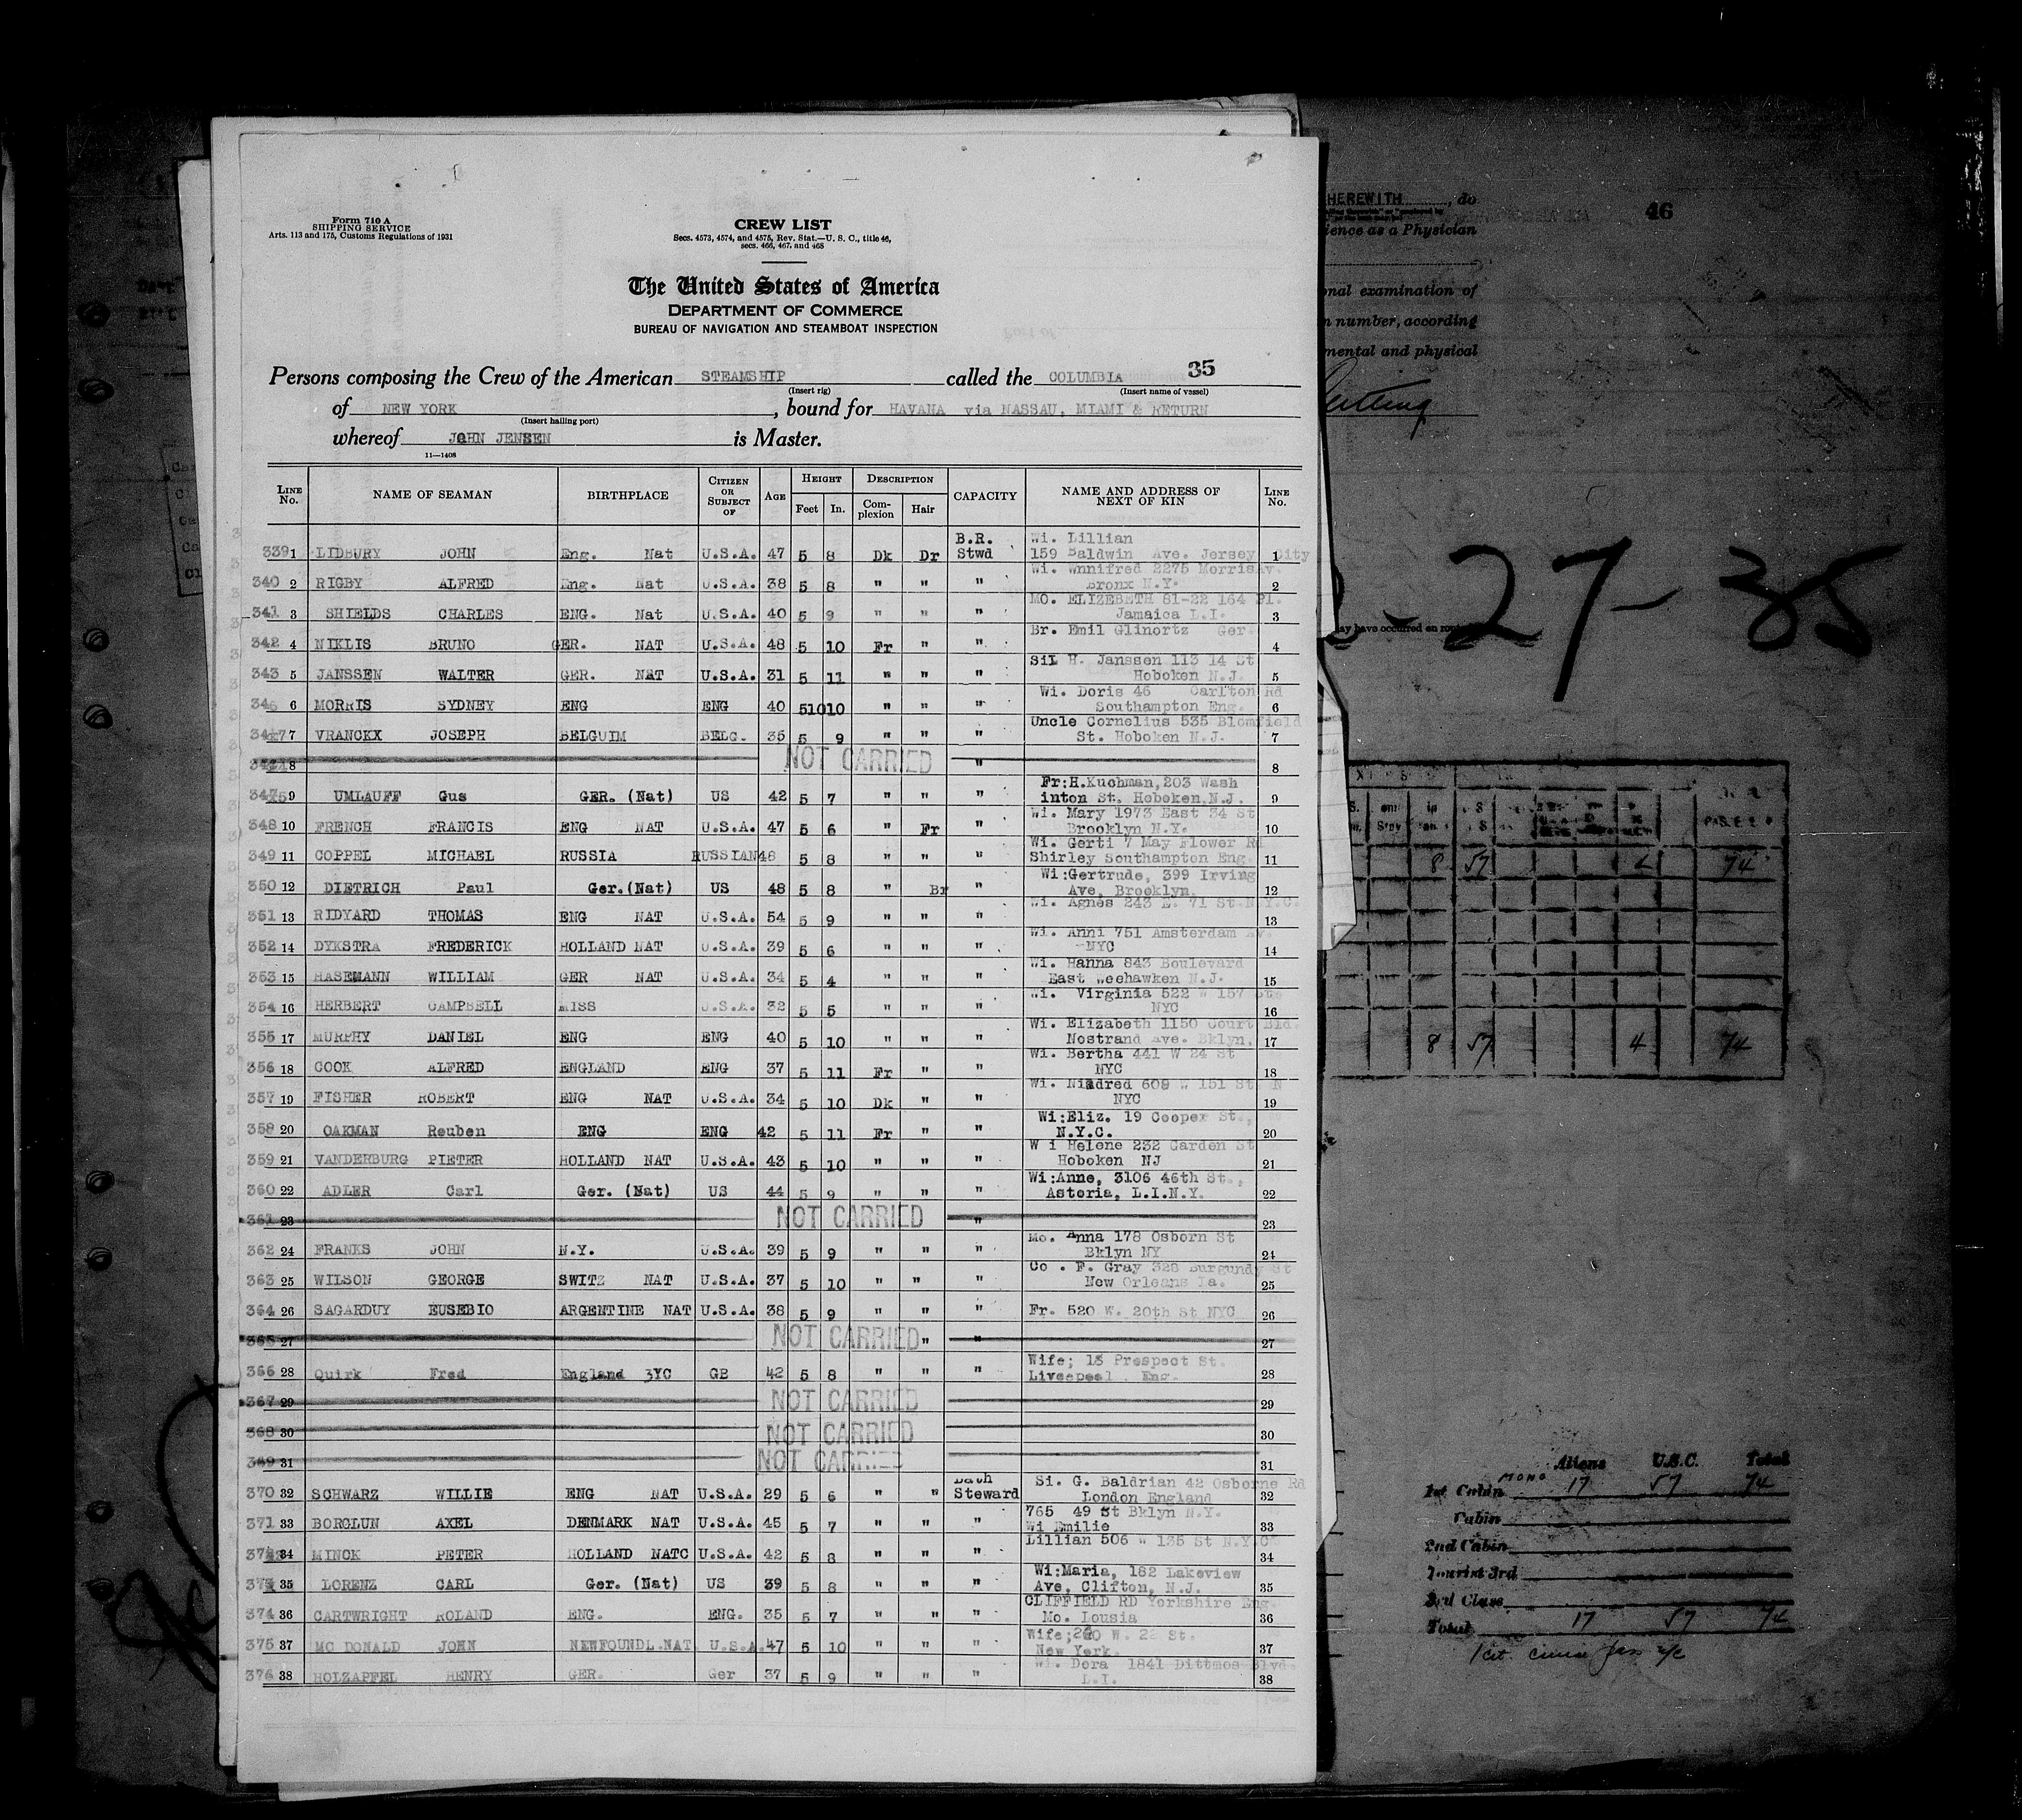 Form 710 A
SHIPPING SERVICE
Arts. 113 and 175, Customs Regulations of 1931
CREW LIST
Secs. 4573, 4574, and 4575, Rev. Stat.—U. S. C., title 46,
secs. 466, 467, and 468
The United States of America
DEPARTMENT OF COMMERCE
BUREAU OF NAVIGATION AND STEAMBOAT INSPECTION
35
Persons composing the Crew of the American STEAMSHIP called the COLUMBIA
(Insert rig) (Insert name of vessel)
of NEW YORK, bound for HAVANA via NASSAU, MIAMI & RETURN
(Insert hailing port)
whereof JOHN JENSEN is Master.
11—1408
LINE No. NAME OF SEAMAN BIRTHPLACE CITIZEN OR SUBJECT OF AGE HEIGHT Feet In. DESCRIPTION Complexion Hair CAPACITY NAME AND ADDRESS OF NEXT OF KIN LINE No.
B.R. Wi. Lillian
339 1 LIDBURY JOHN Eng. Nat U.S.A. 47 5 8 Dk Dr Stwd 159 Baldwin Ave. Jersey City 1
Wi. Wnnifred 2275 Morris Av.
340 2 RIGBY ALFRED Eng. Nat U.S.A. 38 5 8 " " " Bronx N.Y. 2
MO. ELIZEBETH 81-22 164 Pl.
341 3 SHIELDS CHARLES ENG. Nat U.S.A. 40 5 9 " " " Jamaica L.I. 3
Br. Emil Glinortz Ger
342 4 NIKLIS BRUNO GER. NAT U.S.A. 48 5 10 Fr " " 4
SiL H. Janssen 113 14 St
343 5 JANSSEN WALTER GER. NAT U.S.A. 31 5 11 " " " Hoboken N.J. 5
Wi. Doris 46 Carlton Rd
6 MORRIS SYDNEY ENG ENG 40 51010 " " " Southampton Eng. 6
Uncle Cornelius 535 Blomfield
7 VRANCKX JOSEPH BELGUIM BELG. 35 5 9 " " " St. Hoboken N.J. 7
8 NOT CARRIED " 8
Fr:H.Kuchman,203 Wash
347 9 UMLAUFF Gus GER. (Nat) US 42 5 7 " " " inton St. Hoboken.N.J. 9
Wi. Mary 1973 East 34 St
348 10 FRENCH FRANCIS ENG NAT U.S.A. 47 5 6 " Fr " Brooklyn N.Y. 10
Wi. Gerti 7 May Flower Rd
349 11 COPPEL MICHAEL RUSSIA RUSSIAN 48 5 8 " " " Shirley Southampton Eng. 11
Wi:Gertrude, 399 Irving
350 12 DIETRICH Paul Ger.(Nat) US 48 5 8 " Br " Ave, Brooklyn. 12
Wi. Agnes 243 E. 71 St.N.Y.C.
351 13 RIDYARD THOMAS ENG NAT U.S.A. 54 5 9 " " " 13
Wi. Anni 751 Amsterdam Av.
352 14 DYKSTRA FREDERICK HOLLAND NAT U.S.A. 39 5 6 " " " NYC 14
Wi. Hanna 843 Boulevard
353 15 HASEMANN WILLIAM GER NAT U.S.A. 34 5 4 " " " East Weehawken N.J. 15
Wi. Virginia 522 W 157 Sts
354 16 HERBERT CAMPBELL MISS U.S.A. 32 5 5 " " " NYC 16
Wi. Elizabeth 1150 Court Bld.
355 17 MURPHY DANIEL ENG ENG 40 5 10 " " " Nostrand Ave. Bklyn. 17
Wi. Bertha 441 W 24 St
356 18 COOK ALFRED ENGLAND ENG 37 5 11 Fr " " NYC 18
Wi. 609 W 151 St. N
357 19 FISHER ROBERT ENG NAT U.S.A. 34 5 10 Dk " " NYC 19
Wi:Eliz. 19 Cooper St.,
358 20 OAKMAN Reuben ENG ENG 42 5 11 Fr " " N.Y.C. 20
W i Helene 232 Garden St
359 21 VANDERBURG PIETER HOLLAND NAT U.S.A. 43 5 10 " " " Hoboken NJ 21
Wi:Anne, 3106 46th St.,
360 22 ADLER Carl Ger. (Nat) US 44 5 9 " " " Astoria, L.I.N.Y. 22
361 23 NOT CARRIED " 23
Mo. Anna 178 Osborn St
362 24 FRANKS JOHN N.Y. U.S.A. 39 5 9 " " " Bklyn NY 24
Co . F. Gray 328 Burgundy St
363 25 WILSON GEORGE SWITZ NAT U.S.A. 37 5 10 " " " New Orleans Ia. 25
364 26 SAGARDUY EUSEBIO ARGENTINE NAT U.S.A. 38 5 9 " " " Fr. 520 W. 20th St NYC 26
365 27 NOT CARRIED " " 27
Wife; 13 Prospect St.
366 28 Quirk Fred England 3YC GB 42 5 8 " " " Liveepeel Eng. 28
367 29 NOT CARRIED 29
368 30 NOT CARRIED 30
369 31 NOT CARRIED 31
Bath Si. G. Baldrian 42 Osborne Rd
370 32 SCHWARZ WILLIE ENG NAT U.S.A. 29 5 6 " " Steward London England 32
765 49 St Bklyn N.Y.
371 33 BORGLUN AXEL DENMARK NAT U.S.A. 45 5 7 " " " Wi Emilie 33
Lillian 506 W 135 St N.Y.C
34 MINCK PETER HOLLAND NATC U.S.A. 42 5 8 " " " 34
Wi:Maria, 182 Lakeview
373 35 LORENZ CARL Ger. (Nat) US 39 5 8 " " " Ave, Clifton, N.J. 35
CLIFFIELD RD Yorkshire Eng.
374 36 CARTWRIGHT ROLAND ENG. ENG. 35 5 7 " " " Mo. Lousia 36
Wife; W. 22 St.
375 37 MC DONALD JOHN NEWFOUNDL.NAT. U.S.A. 47 5 10 " " " New York. 37
Wi. Dora 1841 Dittmos Blvd.
376 38 HOLZAPFEL HENRY GER. Ger 37 5 9 " " " L.I. 38
HEREWITH, do
46
ience as a Physician
nal examination of
n number, according
mental and physical
ay have occurred en rout
27-35
8 57 74
8 57 4 74
Aliens U.S.C. Total
1st Cabin MONO 17 57 74
Cabin
2nd Cabin
Tourist 3rd
3rd Class
Total 17 57 74